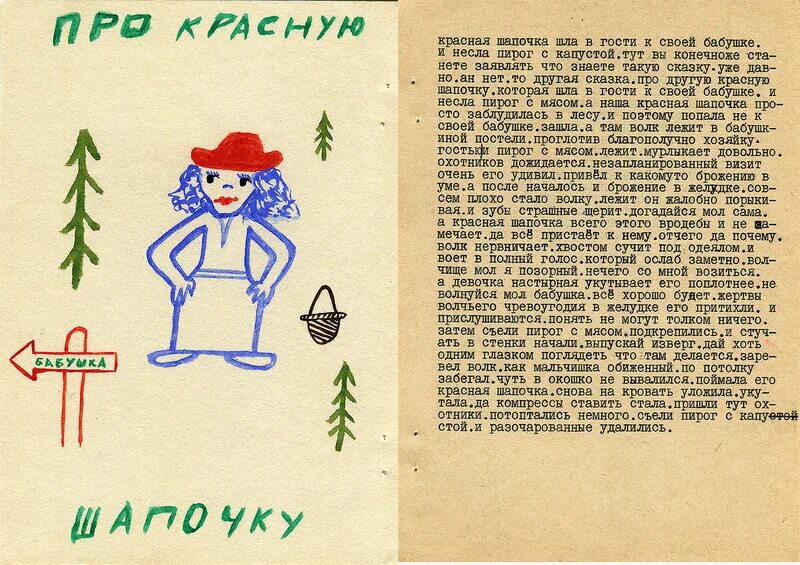 ПРО КРАСНУЮ
БАБУШКА
ШАПОЧКУ
красная шапочка шла в гости к своей бабушке.
и несла пирог с капустой.тут вы конечноже ста-
нете заявлять что знаете такую сказку.уже дав-
но.ан нет.то другая сказка.про другую красную
шапочку.которая шла в гости к своей бабушке. и
несла пирог с мясом.а наша красная шапочка про-
сто заблудилась в лесу.и поэтому попала не к
своей бабушке.зашла.а там волк лежит в бабушк-
иной постели.проглотив благополучно хозяйку.
гостьы пирог с мясом.лежит.мурлыкает довольно.
охотников дожидается.незапланированный визит
очень его удивил.привёл к какомуто брожению в
уме.а после началось и брожение в желудке.сов-
сем плохо стало волку.лежит он жалобно порыки-
вая.и зубы страшные щерит.догадайся мол сама.
а красная шапочка всего этого вродебы и не за-
мечает.да всё пристаёт к нему.отчего да почему.
волк нервничает.хвостом сучит под одеялом.и
воет в полный голос.который ослаб заметно.вол-
чище мол я позорный.нечего со мной возиться.
а девочка настырная укутывает его поплотнее.не
волнуйся мол бабушка.всё хорошо будет.жертвы
волчьего чревоугодия в желудке его притихли. и
прислушиваются.понять не могут толком ничего.
затем съели пирог с мясом.подкрепились.и стуч-
ать в стенки начали.выпускай изверг.дай хоть
одним глазком поглядеть что там делается.заре-
вел волк.как мальчишка обиженный.по потолку
забегал.чуть в окошко не вывалился.поймала его
красная шапочка.снова на кровать уложила.уку-
тала.да компрессы ставить стала.пришли тут ох-
отники.потоптались немного.съели пирог с капустой
стой.и разочарованные удалились.